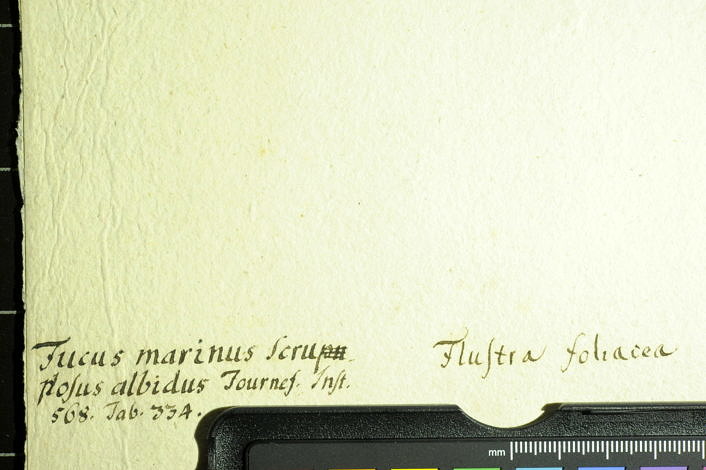 Fucus marinus scru
plosus albidus Tournef. Inst.
568. Tab. 334.
Flustra foliacea
mm